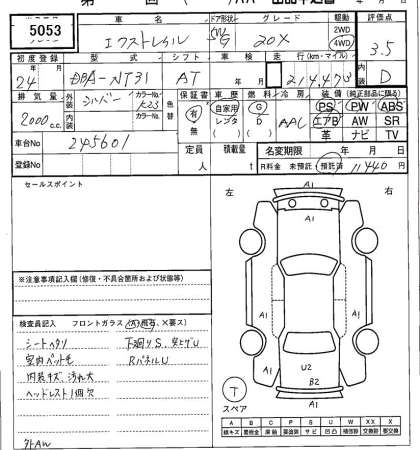 5053
車名
エクストレイル
ドア形状
5W
グレード
20X
駆動
2WD
4WD
評価点
3.5
初度登録
24年 月
型式
DBA-NT31
シフト
AT
車検
年 月
走行(km・マイル)
214,473
内装
D
排気量
2000 c.c.
外装
シルバー
カラーNo.
K23
内装
カラーNo.
色替
保証書
有
無
車歴
自家用
レンタ
( )
燃料
G
D
( )
冷房
AAC
装備(純正部品に限る)
PS PW ABS
エアB AW SR
革 ナビ TV
車台No
245601
登録No
定員
人
積載量
t
名変期限
年 月 日
R料金 未預託 預託済 11440 円
セールスポイント
※注意事項記入欄(修復・不具合箇所および状態等)
検査員記入 フロントガラス
シートヘタリ
室内ペット毛
内装キズ 汚れ大
ヘッドレスト1個欠
下廻りS、突上ゲU
RパネルU
外AW
左
右
A1
A1
A1
A1
U2
B2
A1
T
スペア
A B C P S U W X XX